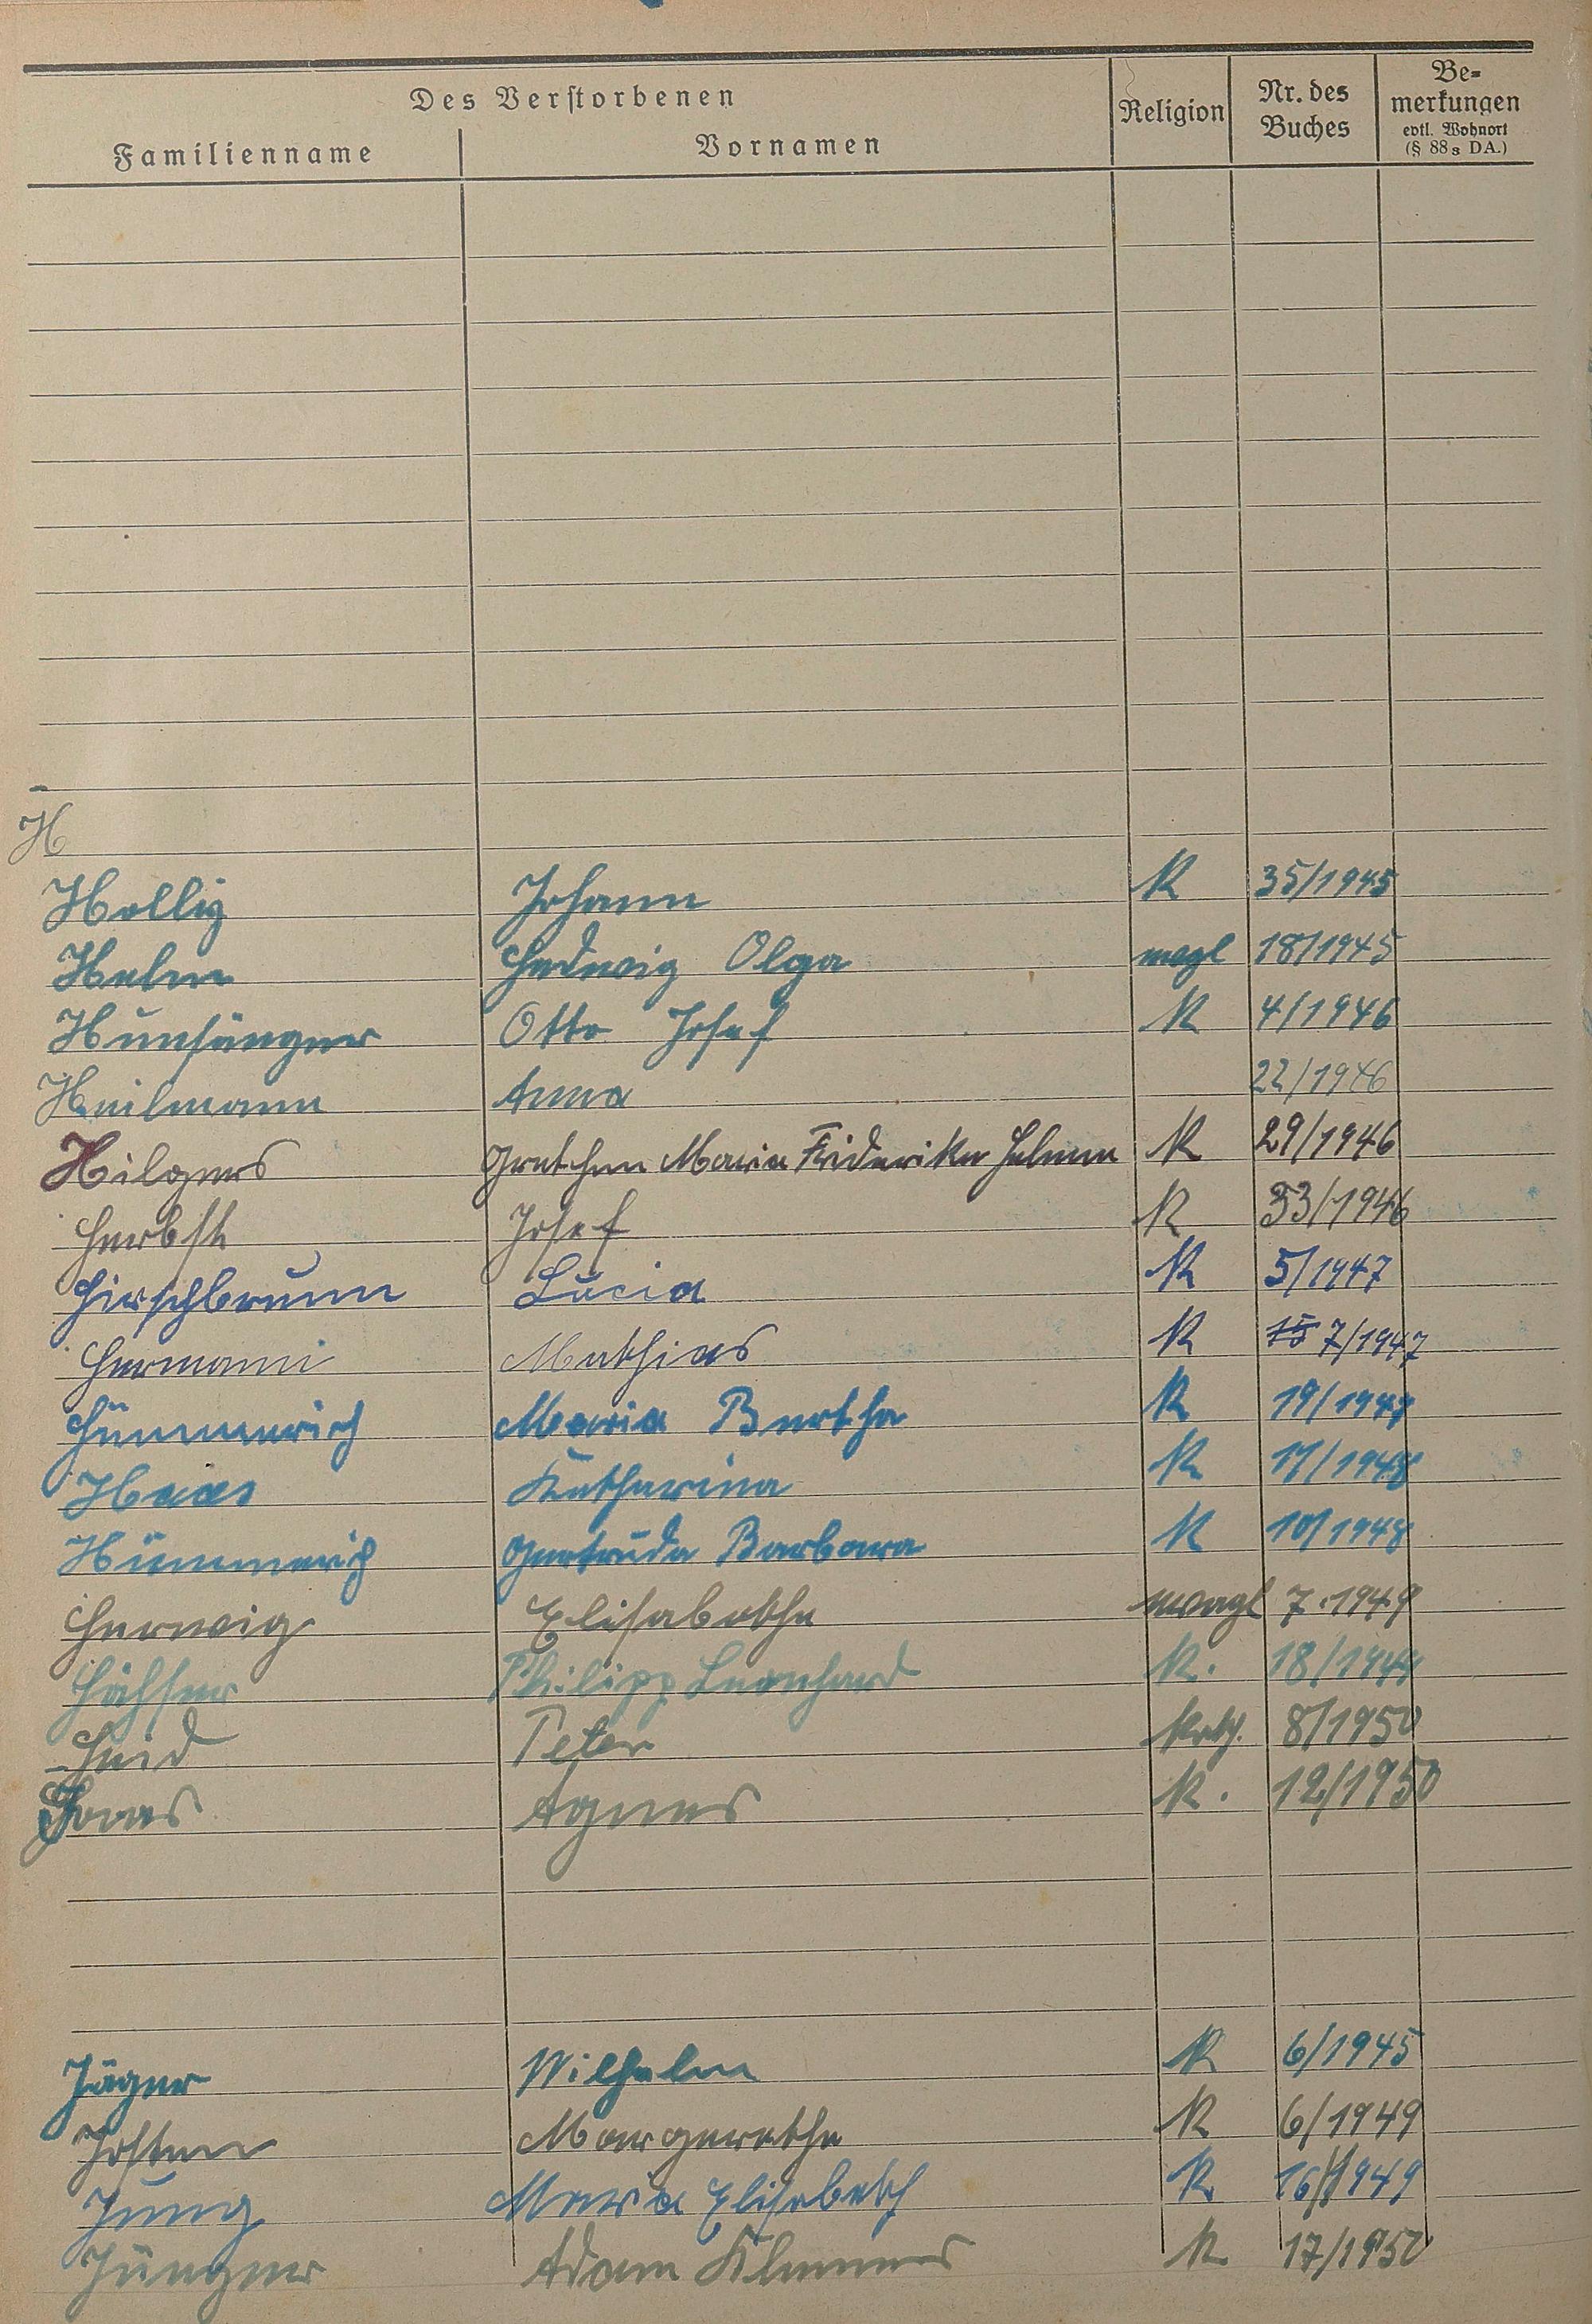 Des Verstorbenen
Familienname Vornamen Religion Nr. des Buches Bemerkungen evtl. Wohnort (§ 88 s DA.)
H
Hollig Johann K 35/1945
Helm Hedwig Olga evagl 18/1945
Hunsänger Otto Josef K 4/1946
Heilmann Anna 22/1946
Hilgers Gretchen Maria Friderike Helene K 29/1946
Herbst Josef K 33/1946
Hirschbrunn Lucia K 5/1947
Hermann Mathias K 15 7/1947
Hümmerich Maria Bertha K 19/1947
Haas Katharina K 11/1948
Hümmerich Gertruda Barbara K 10/1948
Herwig Elisabethe evagl 7.1949
Philipp Leonhard K. 18/1949
Heid Peter Kath. 8/1950
Haas Agnes K. 12/1950
Jäger Wilhelm K 6/1945
Josten Margarethe K 6/1949
Jung Maria Elisabeth K 16/1949
Jünger Adam Klemens K 17/1950